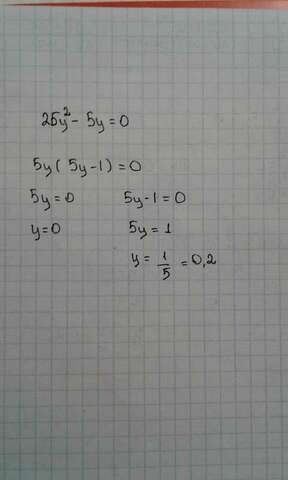 25y² - 5y = 0
5y ( 5y - 1 ) = 0
5y = 0 5y - 1 = 0
y = 0 5y = 1
y = 1/5 = 0,2